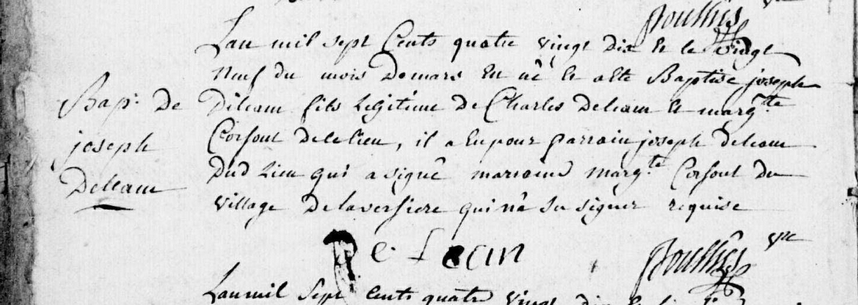 Pouthies vre
Lan mil sept Cents quatre vingt Dix Et le vingt
neuf du mois De mars Est né Et a été Baptise joseph
Bap. De joseph Deleam
Deleam fils légitime De Charles Deleam Et marg.tte
Corsont De ce lieu, il a Eu pour parrain joseph Deleam
Dud Lieu qui a signé marraine marg.te Corsont Du
village De laversiere qui n'a su signer requise
De leam
vre
Lan mil Sept Cents quatre vingt Dix